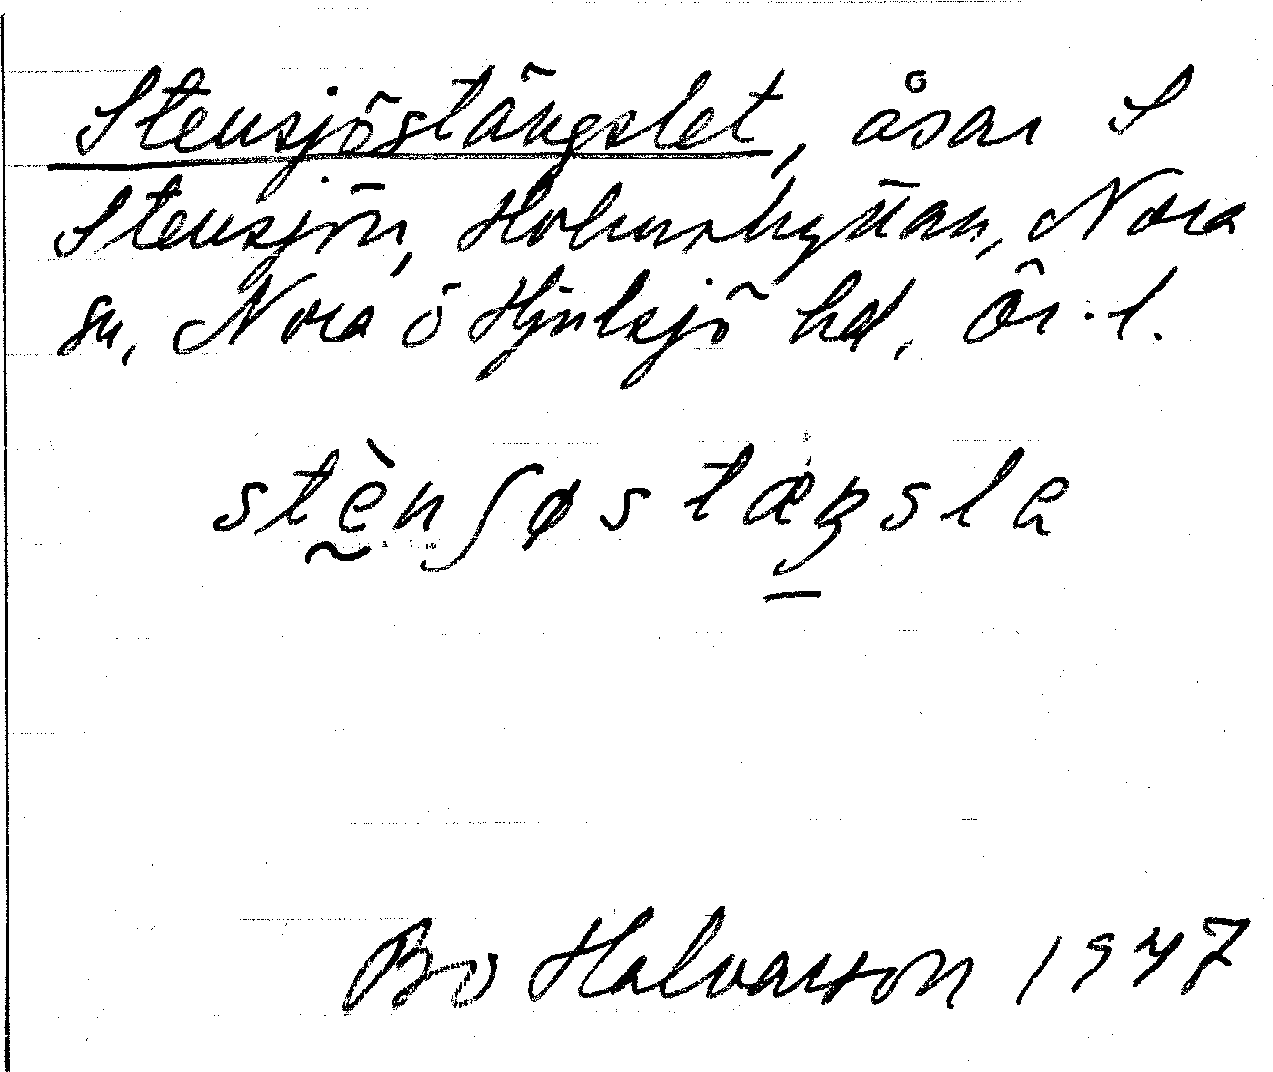 Stensjöstängslet, åsar S
Stensjön, Holmshyttan, Nora
sn, Nora o Hjulsjö hd, Ör. l.
stènʃøstæŋsla
Bo Halvarson 1947